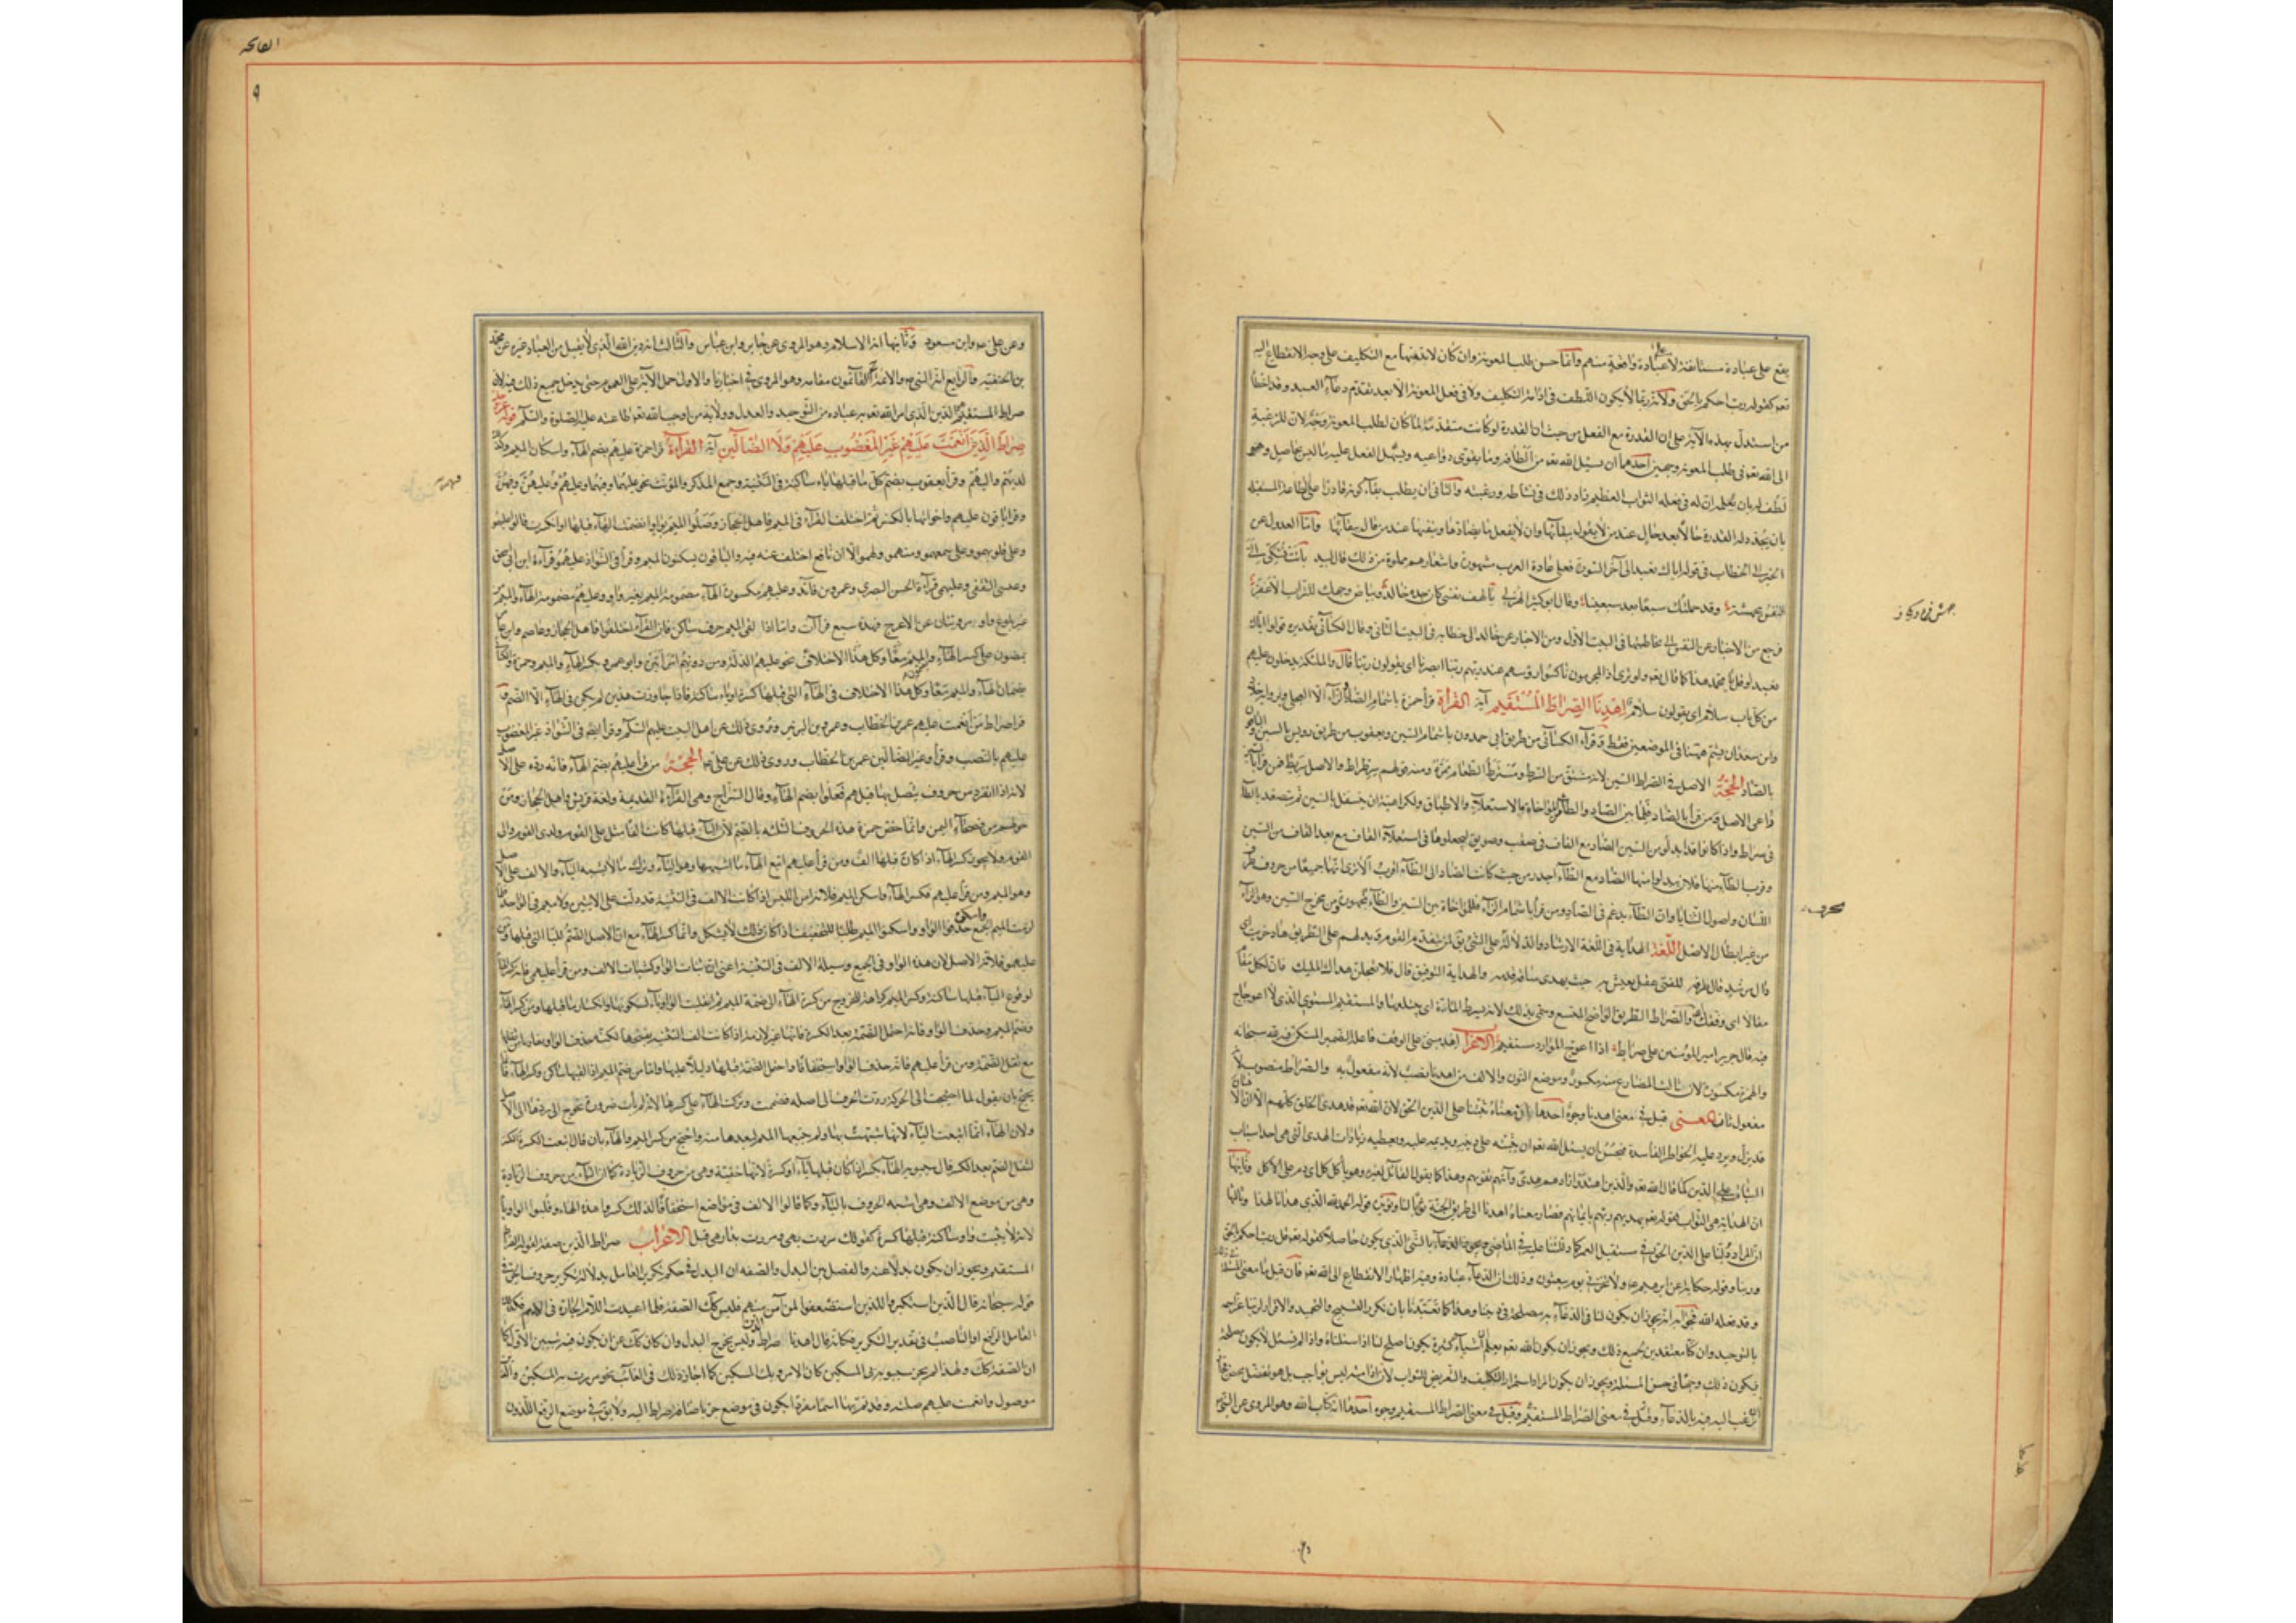 يقع على عبادة مستأنفة لا على عبادة واقعة منهم وانما حسن طلب المعونة وان كان لا بد منها مع التكليف على وجه الانقطاع اليه
تع كقوله رب احكم بالحق ولانه ربما لا يكون اللطف في ادامة التكليف ولا في فعل المعونة الا بعد تقدم دعاء العبد وقد اخطأ
من استدل بهذه الآية على ان القدرة مع الفعل من حيث ان القدرة لو كانت متقدمة لما كان لطلب المعونة وجه لان للرغبة
الى الله تع في طلب المعونة وجهين احدهما ان يسئل الله تع من الطافه وما يقوى دواعيه ويسهل الفعل عليه ما ليس بحاصل ومتى
لطف له بان يعلمه ان له في فعله الثواب العظيم زاد ذلك في نشاطه ورغبته والثاني ان يطلب بقاء كونه قادرا على طاعة المستقبلة
بان يجدد له القدرة حالا بعد حال عند من لا يقول ببقائها وان لا يفعل ما يضادها وينفيها عند من قال ببقائها واما العدول عن
الخبر الى الخطاب في قوله اياك نعبد الى آخر السورة فعلى عادة العرب مشهورة واشعارهم مملوة من ذلك قال لبيد باتت تشكى الى
النفس مجهشة وقد حملتك سبعا بعد سبعينا وقال ابو كبير الهذلي يا لهف نفسي كان جدة خالد وبياض وجهك للتراب الاعفر
فرجع من الاخبار عن النفس الى مخاطبتها في البيت الاول ومن الاخبار عن خالد الى خطابه في البيت الثاني وقال الكسائي تقديره قولوا اياك
نعبد او قل يا محمد هذا كما قال تع ولو ترى اذ المجرمون ناكسوا رؤسهم عند ربهم ربنا ابصرنا اى يقولون ربنا قال والملئكة يدخلون عليهم
من كل باب سلام اى يقولون سلام اهدنا الصراط المستقيم آية القراءة قرأ حمزة باشمام الصاد الزاء الا العجلى
وابن سعدان يشم ههنا في الموضعين فقط وقرأ الكسائي من طريق ابي حمدون باشمام السين ويعقوب من طريق رويس بالسين والباقون
بالصاد الحجة الاصل في الصراط السين لانه مشتق من السرط ومسترط الطعام ممره ومنه قولهم سرطراط والاصل سرط فمن قرأ بالسين
راعى الاصل ومن قرأ بالصاد فلما بين الصاد والطاء من المؤاخاة بالاستعلاء والاطباق ولكراهته ان يتسفل بالسين ثم يتصعد بالطاء
في سراط واذا كانوا قد ابدلوا من السين الصاد مع القاف في صقب وصويق ليجعلوها في استعلاء القاف مع بعد القاف من السين
وقرب الطاء منها فلان يبدلوا منها الصاد مع الطاء اجدر من حيث كانت الصاد الى الطاء اقرب الا ترى انهما جميعا من حروف طرف
اللسان واصول الثنايا وان الطاء يدغم في الصاد ومن قرأ باشمام الزاء فللمؤاخاة بين السين والطاء بحرف مجهور من مخرج السين وهو الزاء
من غير ابطال الاصل اللغة الهداية في اللغة الارشاد والدلالة على الشيء يقال لمن يتقدم القوم ويدلهم على الطريق هاد خريت اى
دال مرشد قال طرفه للفتى عقل يعيش به حيث يهدى ساقه قدمه والهداية التوفيق قال فلا تعجلن هداك المليك فان لكل مقام
مقالا اى وفقك والصراط الطريق الواضح المتسع وسمى بذلك لانه يسرط المارة اى يبتلعها والمستقيم المستوي الذي لا اعوجاج
فيه قال جرير امير المؤمنين على صراط اذا اعوج الموارد مستقيم الاعراب اهد مبني على الوقف فاعله الضمير المستكن فيه لله سبحانه
والهمزة مكسورة لان ثالث المضارع منه مكسور وموضع النون والالف من اهدنا نصب لانه مفعول به والصراط منصوب لانه
مفعول ثان المعنى قيل في معنى اهدنا وجوه احدها ان معناه ثبتنا على الدين الحق لان الله تع قد هدى الخلق كلهم الا ان الانسان
قد يزل ويرد عليه الخواطر الفاسدة فيحسن ان يسئل الله تع ان يثبته على دينه ويديمه عليه ويعطيه زيادات الهدى التي هي احد اسباب
الثبات على الدين كما قال الله تع والذين اهتدوا زادهم هدى وآتيهم تقويهم وهذا كما يقول القائل لغيره وهو يأكل كل اى دم على الاكل وثانيها
ان الهداية هي الثواب لقوله تع يهديهم ربهم بايمانهم فصار معناه اهدنا الى طريق الجنة ثوابا لنا ويؤيده قوله الحمد لله الذي هدانا لهذا وثالثها
ان المراد دلنا على الدين الحق في مستقبل العمر كما دللتنا عليه في الماضي ويجوز الدعاء بالشئ الذي يكون حاصلا كقوله تع قل رب احكم بالحق
وقوله حكاية عن ابرهيم ع ولا تخزني يوم يبعثون وذلك ان الدعاء عبادة وفيه اظهار الانقطاع الى الله تع فان قيل ما معنى المسئلة
وقد فعله الله فجوابه انه يجوز ان يكون لنا في الدعاء به مصلحة في ديننا وهذا كما تعبدنا بان نكرر التسبيح والتحميد والاقرار لربنا عز اسمه
بالتوحيد وان كنا معتقدين لجميع ذلك ويجوز ان يكون الله تع يعلم ان اشياء كثيرة يكون اصلح لنا اذا سئلناه واذا لم نسئل لا يكون مصلحة
فيكون ذلك وجها في حسن المسئلة ويجوز ان يكون المراد استمرار التكليف والتعريض للثواب لان ادامته ليس بواجب بل هو تفضل محض فجاز
ان يرغب اليه فيه بالدعاء وقيل في معنى الصراط المستقيم وجوه احدها انه كتاب الله وهو المروى عن النبي
الفاتحة
٩
وعن على ع وابن مسعود وثانيها انه الاسلام وهو المروى عن جابر وابن عباس والثالث انه دين الله الذي لا يقبل من العباد غيره عن محمد
بن الحنفية والرابع انه النبي ص والائمة القائمون مقامه وهو المروى في اخبارنا والاولى حمل الآية على العموم حتى يدخل جميع ذلك فيه لان
صراط المستقيم هو الدين الذي امر الله تع به عباده من التوحيد والعدل وولاية من اوجب الله تع طاعته عليه الصلوة والسلم قوله
صراط الذين انعمت عليهم غير المغضوب عليهم ولا الضالين آية القراءة قرأ حمزة عليهم بضم الهاء واسكان الميم وكذلك
لديهم واليهم وقرأ يعقوب بضم كل هاء قبلها ياء ساكنة في التثنية وجمع المذكر والمؤنث نحو عليهما وفيهما وعليهم وعليهن وفيهن
وقرأ الباقون عليهم واخواتها بالكسر ثم اختلف القراء في الميم فاهل الحجاز وصلوا الميم بواو انضمت الهاء قبلها او انكسرت قالوا عليهمو
وعلى قلوبهمو وعلى سمعهمو ومنهمو ولهمو الا ان نافع اختلف عنه فيه والباقون بسكون الميم وقرأ في الشواذ عليهمو قراءة ابن ابي اسحق
وعيسى الثقفى وعليهمي قراءة الحسن البصري وعمرو بن قائد وعليهم مكسورة الهاء مضمومة الميم بغير واو وعليهم مضمومة الهاء والميم من
غير بلوغ واو مرويتان عن الاعرج فهذه سبع قراآت واما اذا لقى الميم حرف ساكن فان القراء اختلفوا فاهل الحجاز وعاصم وابن عامر
يمضون على كسر الهاء وضم الميم نحو عليهم الذلة ومن دونهم امرأتين وابو عمرو بكسر الهاء والميم وحمزة والكسائي
يضمان الهاء والميم معا وكل هذا الاختلاف في الهاء التي قبلها كسرة او ياء ساكنة فاذا جاوزت هذين لم يكن في الهاء الا الضم و
قرأ صراط من انعمت عليهم عمر بن الخطاب وعمرو بن الزبير وروى ذلك عن اهل البيت عليهم السلم وقرأ ايضا في الشواذ غير المغضوب
عليهم بالنصب وقرأ وغير الضالين عمر بن الخطاب وروى ذلك عن على ع الحجة من قرأ عليهم بضم الهاء فانه رده على الاصل
لانه اذا انفرد من حروف يتصل بها قيل هم فعلوا بضم الهاء وقال السراج وهي القراءة القديمة ولغة قريش واهل الحجاز ومن
حولهم من فصحاء اليمن وانما خص حمزة هذه الحروف الثلثة بالضم لان الياء قبلها كانت الفا مثل على القوم ولدى القوم والى
القوم ولا يجوز كسر الهاء اذا كان قبلها الف ومن قرأ عليهم اتبع الهاء ما اشبهها وهو الياء وترك ما لا يشبه الياء والالف على الاصل
وهو الميم ومن قرأ عليهم فكسر الهاء واسكن الميم فلانه امن اللبس اذا كانت الالف في التثنية قد دلت على الاثنين ولا ميم في الواحد فلما
لزمت الميم الجمع حذفوا الواو واسكنوا الميم طلبا للتخفيف اذا كان ذلك لا يشكل وانما كسر الهاء مع ان الاصل الضم للياء التي قبلها ومن قرأ
عليهمو فلانه الاصل لان هذه الواو في الجمع وسيلة الالف في التثنية اعنى ان ثبات الواو كثبات الالف ومن قرأ عليهمي فانه كسر الهاء
لوقوع الياء قبلها ساكنة وكسر الميم كراهة للخروج من كسرة الهاء الى ضمة الميم ثم انقلبت الواو ياء لسكونها وانكسار ما قبلها ومن كسر الهاء
وضم الميم وحذف الواو فانه احتمل الضمة بعد الكسرة لانها غير لازمة اذا كانت الف التثنية بفتحها لكنه حذف الواو
مع ثقل الضمة ومن قرأ عليهم فانه حذف الواو استخفافا واحتمل الضمة قبلها دليلا عليها واما من ضم الميم اذا لقيها ساكن وكسر الهاء فانما
يحتج بان يقول لما احتجت الى الحركة رددت الحرف الى اصله فضممت وتركت الهاء على كسرها لانه لم يأت ضرورة تحوج الى ردها الى الاصل
ولان الهاء انما اتبعت الياء لانها شبهت بها ولم يتبعها الميم لبعدها منه واحتج من كسر الميم والهاء بان قال اتبعت الكسرة الكسرة
لثقل الضم بعد الكسر قال سيبويه الهاء تكسر اذا كان قبلها ياء او كسرة لانها خفية وهي من حروف الزيادة كما ان الياء من حروف الزيادة
وهي من موضع الالف وهي اشبه الحروف بالياء وكما قالوا الالف في مواضع استخفافا كذلك كسروا هذه الهاء وقلبوا الواو ياء
لانه لا يثبت واو ساكنة قبلها كسرة كقولك مررت بهى ومررت بدارهى قبل الاعراب صراط الذين صفة لقوله الصراط
المستقيم ويجوز ان يكون بدلا عنه والفصل بين البدل والصفة ان البدل في حكم تكرير العامل بدلالة تكرير حرف الجر في
قوله سبحانه قال الذين استكبروا للذين استضعفوا لمن آمن منهم فليس كذلك الصفة فكما اعيدت اللام الجارة في الاسم فكذلك
العامل الرافع او الناصب في تقدير التكرير فكانه قال اهدنا صراط الذين وليس يخرج البدل وان كان كذلك عن ان يكون فيه تبيين الاول كما
ان الصفة كذلك ولهذا لم يجز سيبويه بى المسكين كان الامر وبك المسكين كما اجاز ذلك في الغائب نحو مررت به المسكين والذين
موصول وانعمت عليهم صلته وقد تم بها اسما مفردا يكون في موضع جر باضافة صراط اليه ولا يق في موضع الرفع اللذون